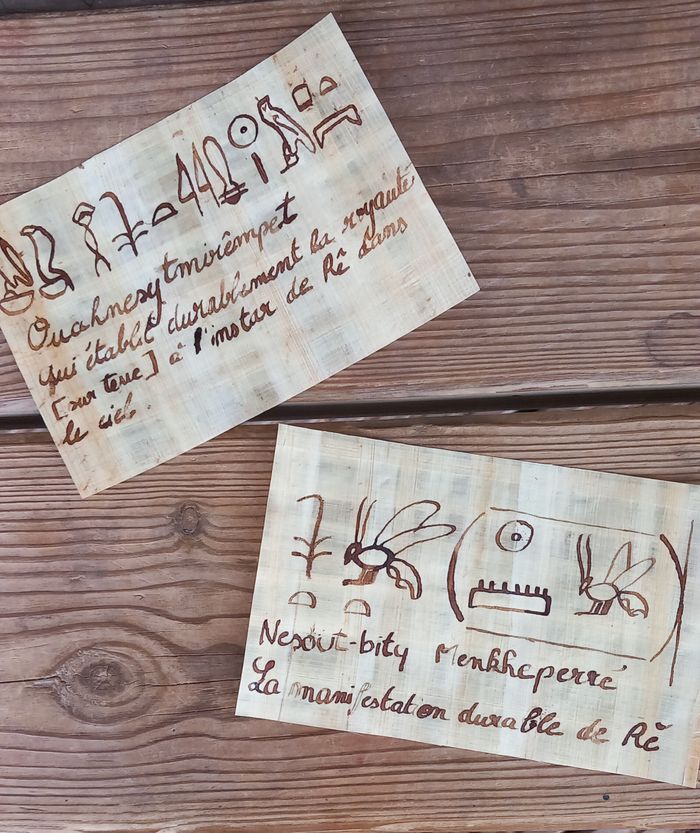 Ouahnesytmirêmpet
qui établit durablement la royauté
[sur terre] à l'instar de Rê dans
le ciel.
Nesout-bity Menkheperré
La manifestation durable de Rê